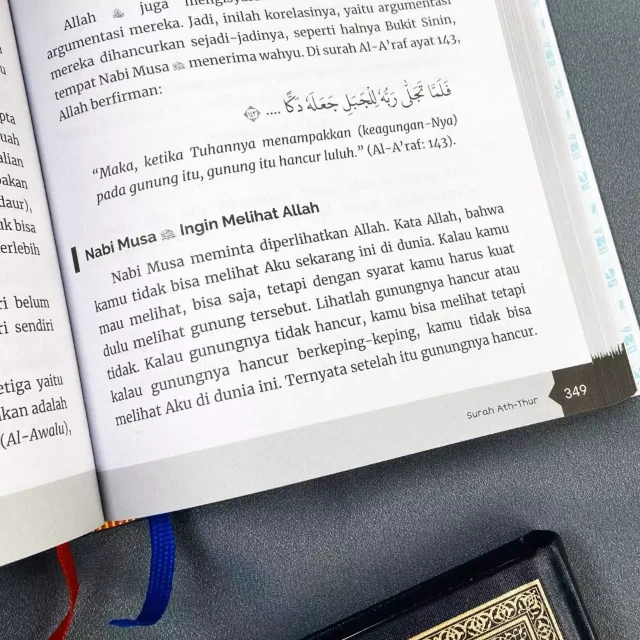 u
pta
uah
alian
akan
daur),
k bisa
erlebih
ri belum
ri sendiri
etiga yaitu
kan adalah
(Al-Awalu),
Allah ﷻ juga
argumentasi mereka. Jadi, inilah korelasinya, yaitu argumentasi
mereka dihancurkan sejadi-jadinya, seperti halnya Bukit Sinin,
tempat Nabi Musa menerima wahyu. Di surah Al-A'raf ayat 143,
Allah berfirman:
فَلَمَّا تَجَلّٰى رَبُّهٗ لِلْجَبَلِ جَعَلَهٗ دَكًّا .... ١٤٣
“Maka, ketika Tuhannya menampakkan (keagungan-Nya)
pada gunung itu, gunung itu hancur luluh.” (Al-A'raf: 143).
Nabi Musa Ingin Melihat Allah
Nabi Musa meminta diperlihatkan Allah. Kata Allah, bahwa
kamu tidak bisa melihat Aku sekarang ini di dunia. Kalau kamu
mau melihat, bisa saja, tetapi dengan syarat kamu harus kuat
dulu melihat gunung tersebut. Lihatlah gunungnya hancur atau
tidak. Kalau gunungnya tidak hancur, kamu bisa melihat tetapi
kalau gunungnya hancur berkeping-keping, kamu tidak bisa
melihat Aku di dunia ini. Ternyata setelah itu gunungnya hancur.
Surah Ath-Thur 349